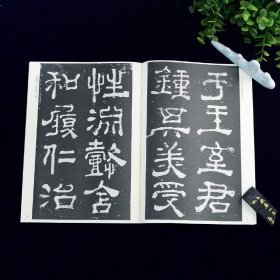 于王室君
鍾其美受
性淵懿含
和履仁治